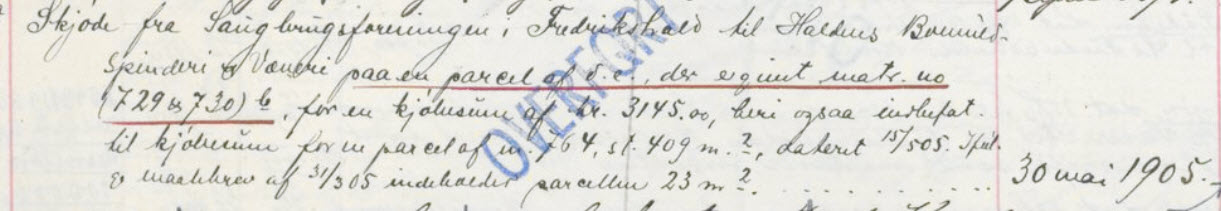 Skjøde fra Saugbrugsforeningen i Fredrikshald til Haldens Bomuld-
spinderi & Væveri paa en parcel af d. e., der er givet matr. no
(729 & 730) b, for en kjøbesum af kr. 3145.00, heri ogsaa indbefat.
til kjøbesum for en parcel af m. 764, st. 409 m.², dateret 15/5 05. Iføl.
& maalebrev af 31/3 05 indeholder parcellen 23 m². . . . . . . . . . 30 mai 1905.
OVERFØRT